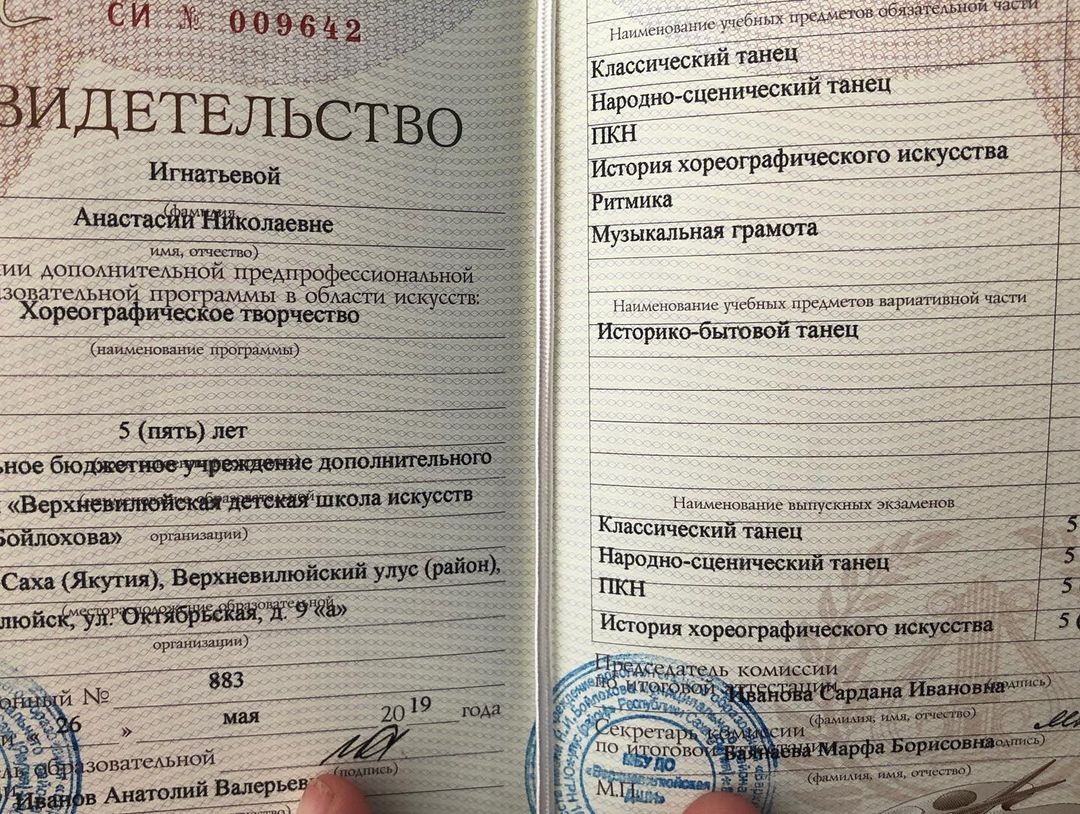 СИ № 009642
ВИДЕТЕЛЬСТВО
Игнатьевой
(фамилия
Анастасии Николаевне
имя, отчество)
ии дополнительной предпрофессиональной
зовательной программы в области искусств:
Хореографическое творчество
(наименование программы)
5 (пять) лет
ное бюджетное учреждение дополнительного
«Верхневилюйская детская школа искусств
(наименование образовательной
Бойлохова»
организации)
Саха (Якутия), Верхневилюйский улус (район),
(месторасположение образовательной
люйск, ул. Октябрьская, д. 9 «а»
организации)
онный № 883
« 26 » мая 2019 года
образовательной
(подпись)
Иванов Анатолий Валерьев
Наименование учебных предметов обязательной части
Классический танец
Народно-сценический танец
ПКН
История хореографического искусства
Ритмика
Музыкальная грамота
Наименование учебных предметов вариативной части
Историко-бытовой танец
Наименование выпускных экзаменов
Классический танец 5
Народно-сценический танец 5
ПКН 5
История хореографического искусства 5 (
Председатель комиссии
по итоговой аттестации Иванова Сардана Ивановна
подпись)
(фамилия, имя, отчество)
Секретарь комиссии
по итоговой аттестации Марфа Борисовна
подпись)
(фамилия, имя, отчество)
М.П.
МБУ ДО
«Верхневилюйская
ДШИ»